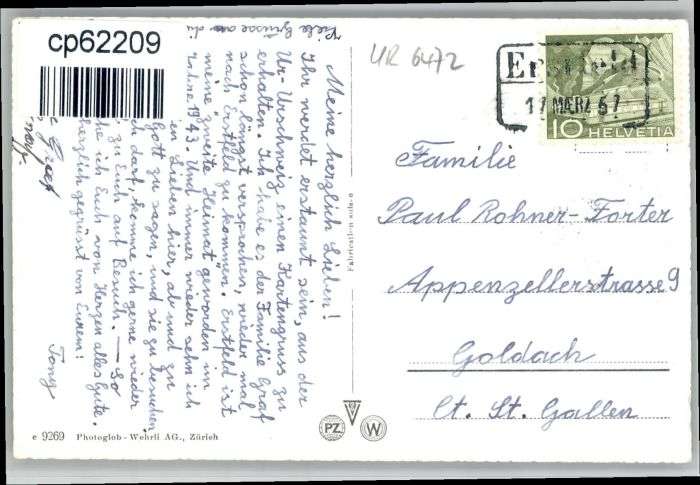 cp62209
UR 6472
17. MÄRZ 57
10 HELVETIA
Familie
Paul Rohner-Forter
Appenzellerstrasse 9
Goldach
Ct. St. Gallen
Meine herzlich Lieben!
Ihr werdet erstaunt sein, aus der
Ur-Urschweiz einen Kartengruss zu
erhalten. Ich habe es der Familie Graf
schon längst versprochen, wieder mal
nach Erstfeld zu kommen. Erstfeld ist
meine zweite Heimat geworden im
Jahre 1943. Und immer wieder sehn ich
en Lieben hier, ab und zu
Gott zu sagen, und sie zu besuchen
ch darf, komme ich gerne wieder
zu Euch auf Besuch. — So
he ich Euch von Herzen alles Gute.
herzlich gegrüsst von Eurem!
Tony
Viele Grüsse an di
Graf
Fabrication suisse
PZ W
e 9269 Photoglob-Wehrli AG., Zürich